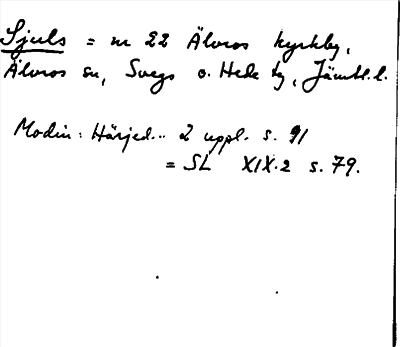 Sjuls = nr 22 Älvros kyrkby,
Älvros sn, Svegs o. Hede tg, Jämtl. l.
Modin: Härjed.. 2 uppl. s. 91
= SL XIX.2 s. 79.